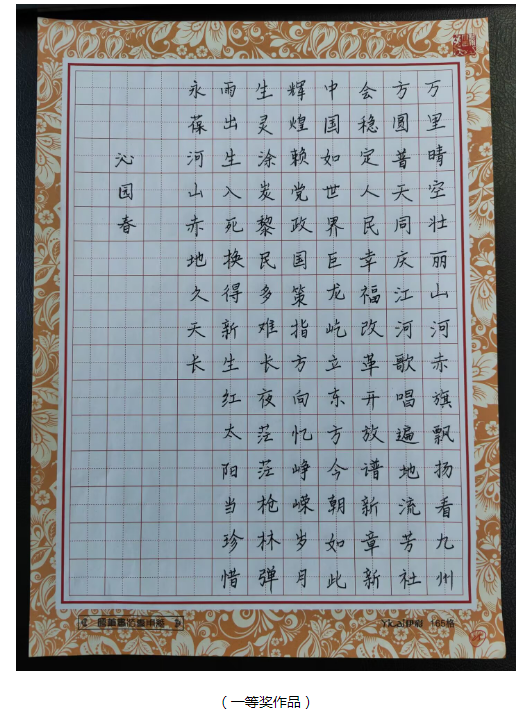 万里晴空壮丽山河赤旗飘扬看九州
方圆普天同庆江河歌唱遍地流芳社
会稳定人民幸福改革开放谱新章新
中国如世界巨龙屹立东方今朝如此
辉煌赖党政国策指方向忆峥嵘岁月
生灵涂炭黎民多难长夜茫茫枪林弹
雨出生入死换得新生红太阳当珍惜
永葆河山赤地久天长
沁园春
Yicai 165格
（一等奖作品）